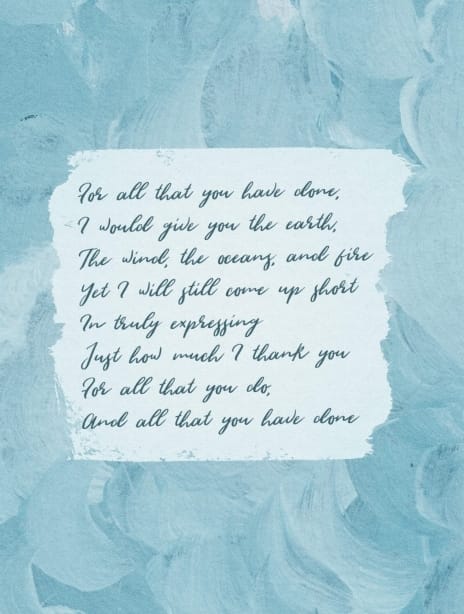 For all that you have done,
I would give you the earth,
The wind, the oceans, and fire
Yet I will still come up short
In truly expressing
Just how much I thank you
For all that you do,
And all that you have done